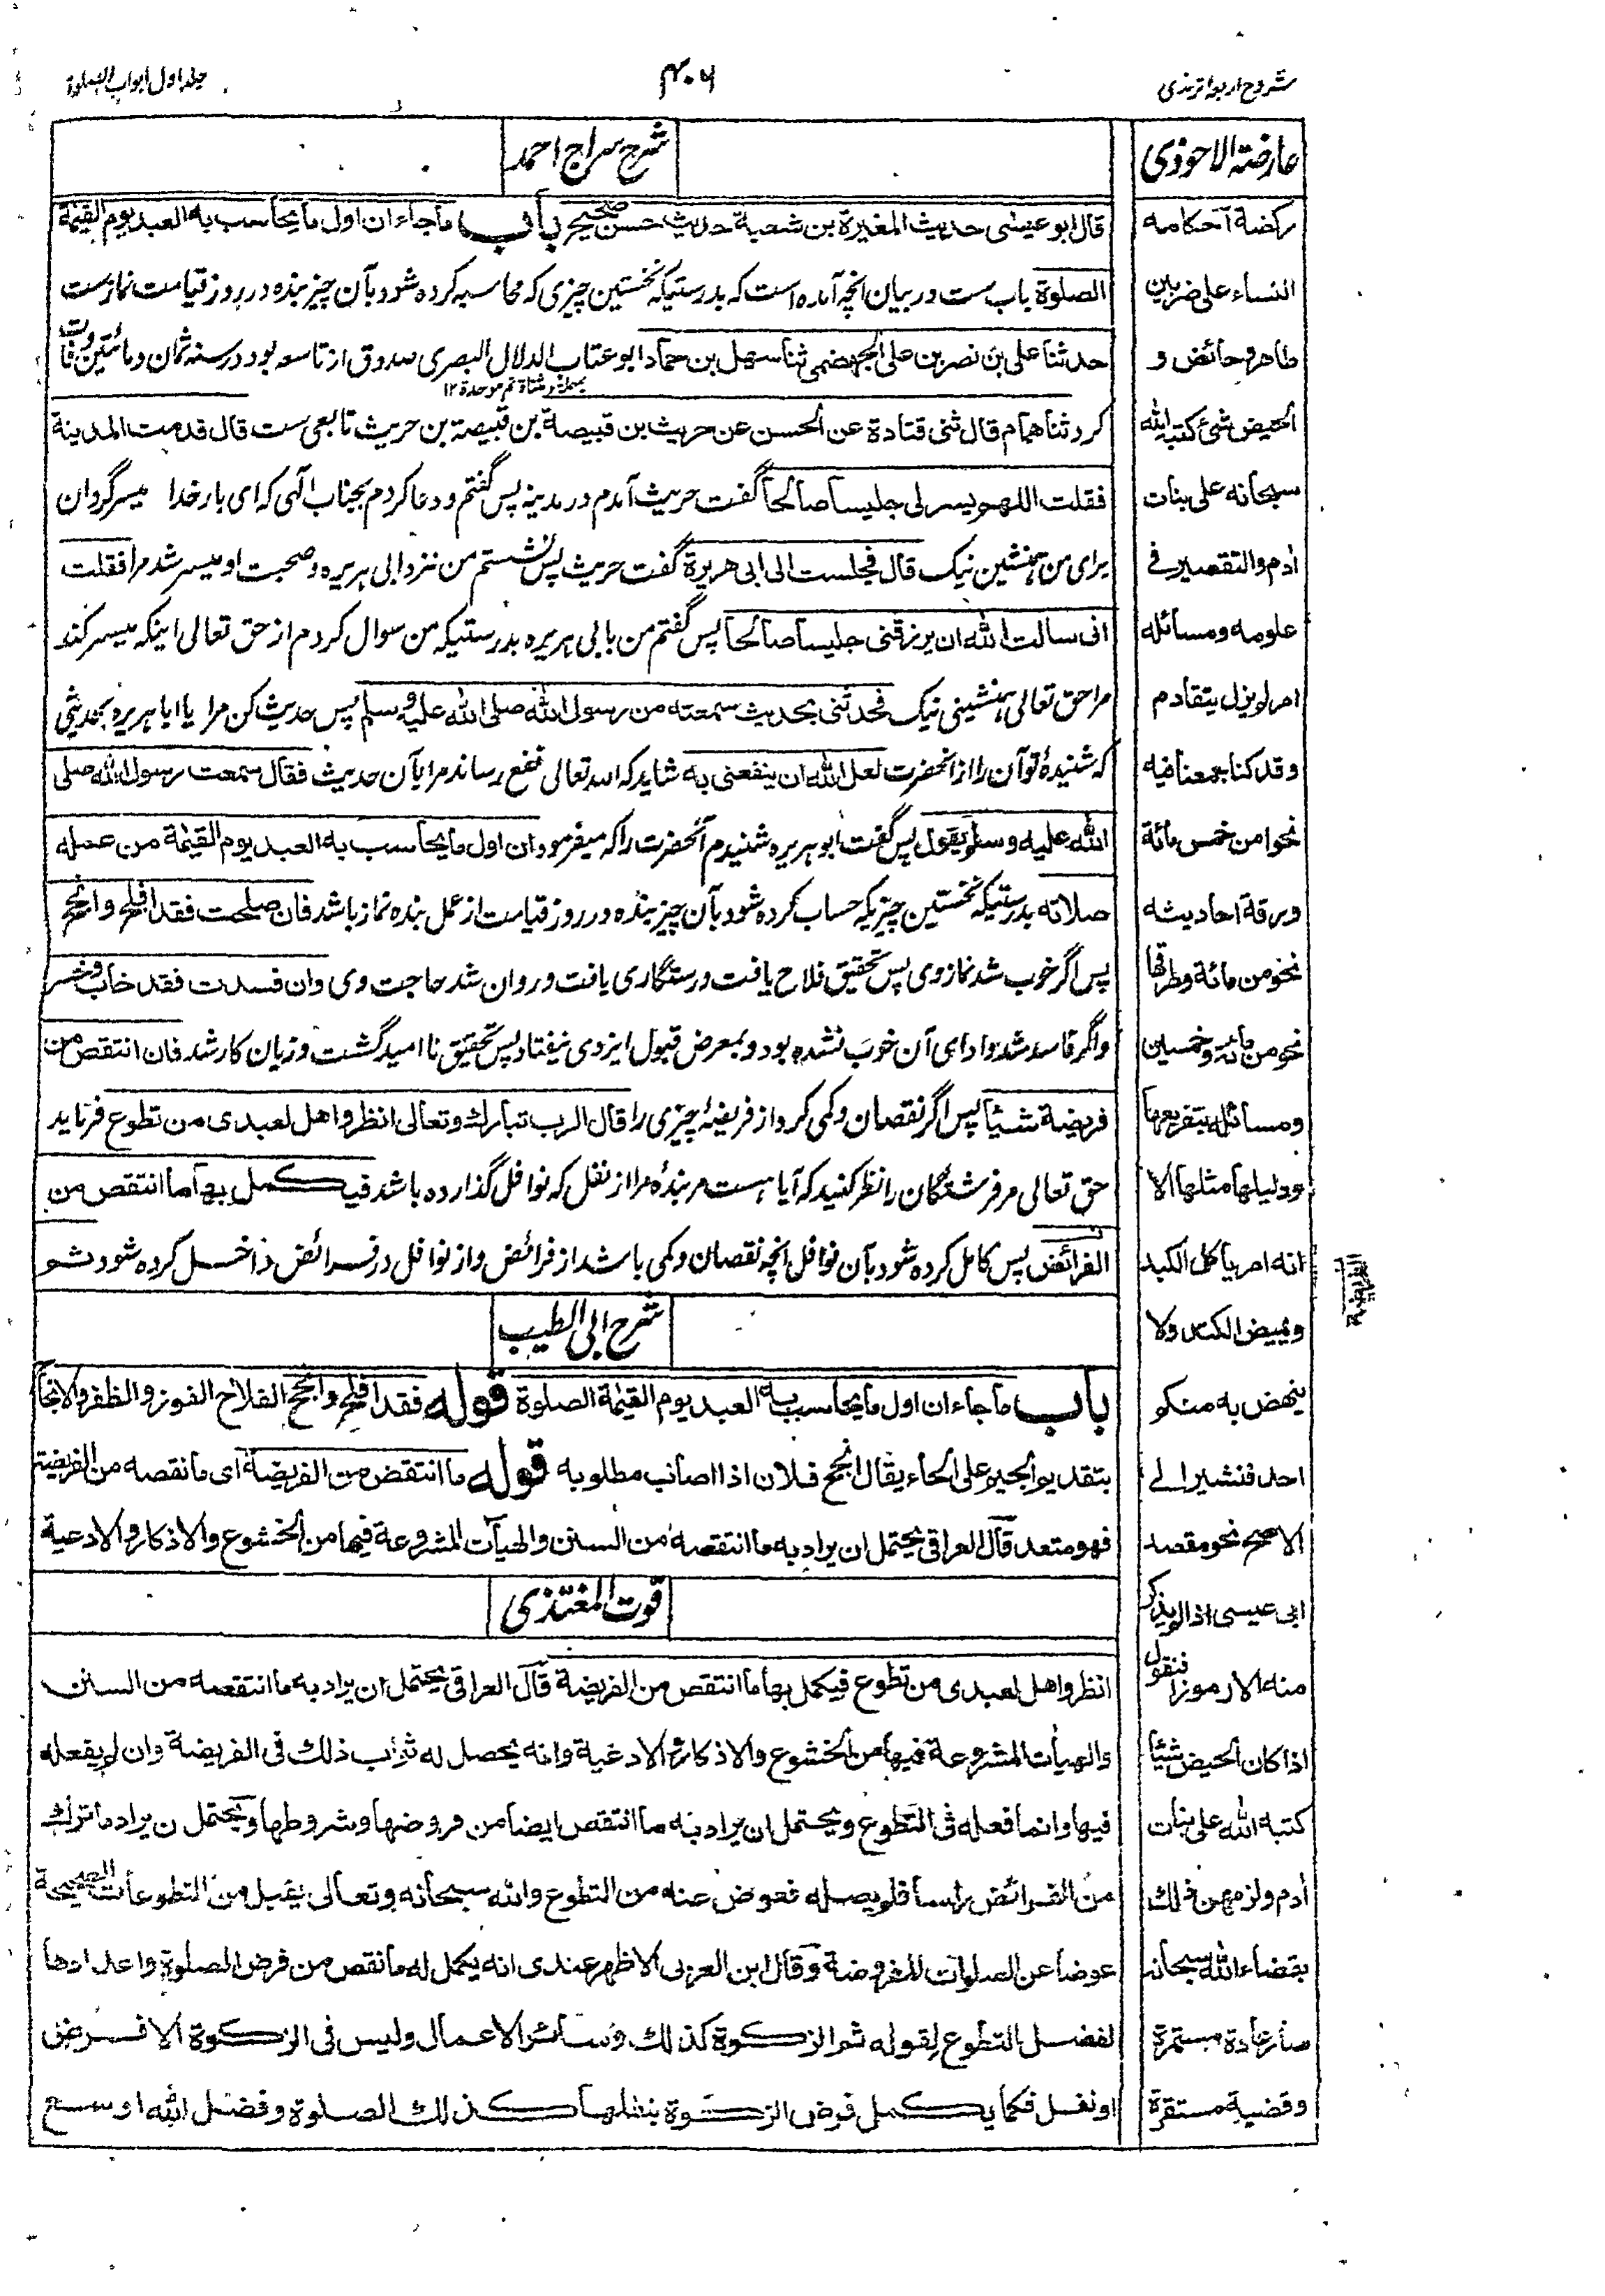 شروح اربعه ترمذی
۴۰۶
جلد اول ابواب الصلوة
عارضة الاحوذی
ركضة احكامه
النساء على ضربين
طاهر وحائض و
الحيض شئ كتبه الله
سبحانه على بنات
ادم والتقصير فى
علومه ومسائله
امر لم يزل يتقادم
وقد كنا جمعنا فيه
نحوا من خمس مائة
ورقة احاديثه
نحو من مائة وطرقها
نحو من مائة وخمسين
ومسائله بتفريعها
ودليلها مثلها الا
انه امر ياكل الكبد
ولا
ينهض به منكم
احد فنشير الى
الاصح نحو مقصد
ابى عيسى اذا لم يذكر
منه الا رموزا فنقول
اذا كان الحيض شيئا
كتبه الله على بنات
ادم ولزمهن ذلك
بقضاء الله سبحانه
صار عادة مستمرة
وقضية مستقرة
شرح سراج احمد
قال ابو عيسى حديث المغيرة بن شعبة حديث حسن صحيح باب ما جاء ان اول ما يحاسب به العبد يوم القيمة
الصلوة باب ست در بيان انچه آمده است كه بدرستيكه نخستين چيزی كه محاسبه كرده شود بآن چيز بنده در روز قيامت نماز ست
حدثنا على بن نصر بن على الجهضمى ثنا سهل بن حماد ابو عتاب الدلال البصرى صدوق از تاسعه بود در سنه ثمان ومائتين وفات
بمهملة ومثناة ثم موحدة ۱۲
كرد ثنا همام قال ثنى قتادة عن الحسن عن حريث بن قبيصة بن قبيصة بن حريث تابعی ست قال قدمت المدينة
فقلت اللهم يسر لى جليسا صالحا گفت حريث آمدم در مدينه پس گفتم و دعا كردم بجناب الٰهی كه ای بار خدا ميسر گردان
برای من همنشين نيک قال فجلست الى ابى هريرة گفت حريث پس نشستم من نزد ابی هريره و صحبت او ميسر شد مرا فقلت
انى سالت الله ان يرزقنى جليسا صالحا پس گفتم من بابی هريره بدرستيكه من سوال كردم از حق تعالی اينكه ميسر كند
مرا حق تعالی همنشينی نيک فحدثنى بحديث سمعته من رسول الله صلى الله عليه وسلم پس حديث كن مرا يا ابا هريره بحديثی
كه شنيدۀ تو آن را از آنحضرت لعل الله ان ينفعنى به شايد كه الله تعالی نفع رساند مرا بآن حديث فقال سمعت رسول الله صلى
الله عليه وسلم يقول پس گفت ابو هريره شنيدم آنحضرت را كه ميفرمود ان اول ما يحاسب به العبد يوم القيمة من عمله
صلاته بدرستيكه نخستين چيزيكه حساب كرده شود بآن چيز بنده در روز قيامت از عمل بنده نماز باشد فان صلحت فقد افلح وانجح
پس اگر خوب شد نماز وی پس تحقيق فلاح يافت و رستگاری يافت و روان شد حاجت وی وان فسدت فقد خاب وخسر
واگر فاسد شد و ادای آن خوب نشده بود و بمعرض قبول ايزدی نيفتاد پس تحقيق نا اميد گشت و زيان كار شد فان انتقص من
فريضة شيئا پس اگر نقصان و كمی كرد از فريضه چيزی را قال الرب تبارك وتعالى انظروا هل لعبدى من تطوع فرمايد
حق تعالی مر فرشتگان را نظر كنيد كه آيا هست مر بندۀ مرا از نفل كه نوافل گذارده باشد فيكمل بها ما انتقص من
الفرائض پس كامل كرده شود بآن نوافل انچه نقصان و كمی باشد از فرائض و از نوافل در فرائض داخل كرده شود ثم
شرح ابی الطيب
باب ما جاء ان اول ما يحاسب به العبد يوم القيمة الصلوة قوله فقد افلح وانجح الفلاح الفوز والظفر والانجاح
بتقديم الجيم على الحاء يقال انجح فلان اذا اصاب مطلوبه قوله ما انتقص من الفريضة اى ما نقصه من الفريضة
فهو متعد قال العراقى يحتمل ان يراد به ما انتقصه من السنن والهيآت المشروعة فيها من الخشوع والاذكار والادعية
قوت المغتذی
انظروا هل لعبدى من تطوع فيكمل بها ما انتقص من الفريضة قال العراقى يحتمل ان يراد به ما انتقصه من السنن
والهيأت المشروعة فيها من الخشوع والاذكار والادعية وانه يحصل له ثواب ذلك فى الفريضة وان لم يفعله
فيها وانما فعله فى التطوع ويحتمل ان يراد به ما انتقص ايضا من فروضها وشروطها ويحتمل ن يراد ما ترك
من الفرائض راسا فلم يصله فعوض عنه من التطوع والله سبحانه وتعالى يقبل من التطوعات الصحيحة
عوضا عن الصلوات المفروضة وقال ابن العربى الاظهر عندى انه يكمل له ما نقص من فرض الصلوة واعدادها
لفضل التطوع لقوله ثم الزكوة كذلك وسائر الاعمال وليس فى الزكوة الا فرض
او نفل فكما يكمل فرض الزكوة بنفلها كذلك الصلوة وفضل الله اوسع